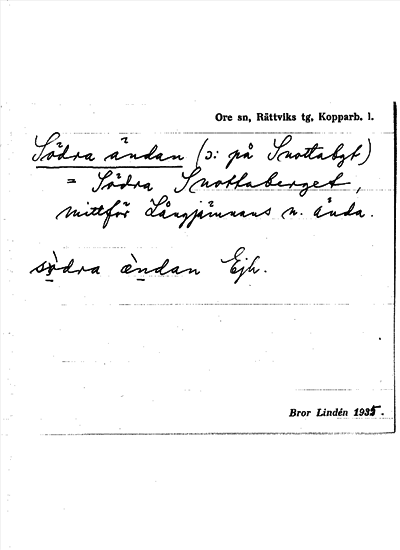 Ore sn, Rättviks tg, Kopparb. l.
Södra ändan (ɔ: på Snottabgt)
= Södra Snottaberget,
mittför Långjämnans n. ända.
södra ändan Ejh.
Bror Lindén 1935.